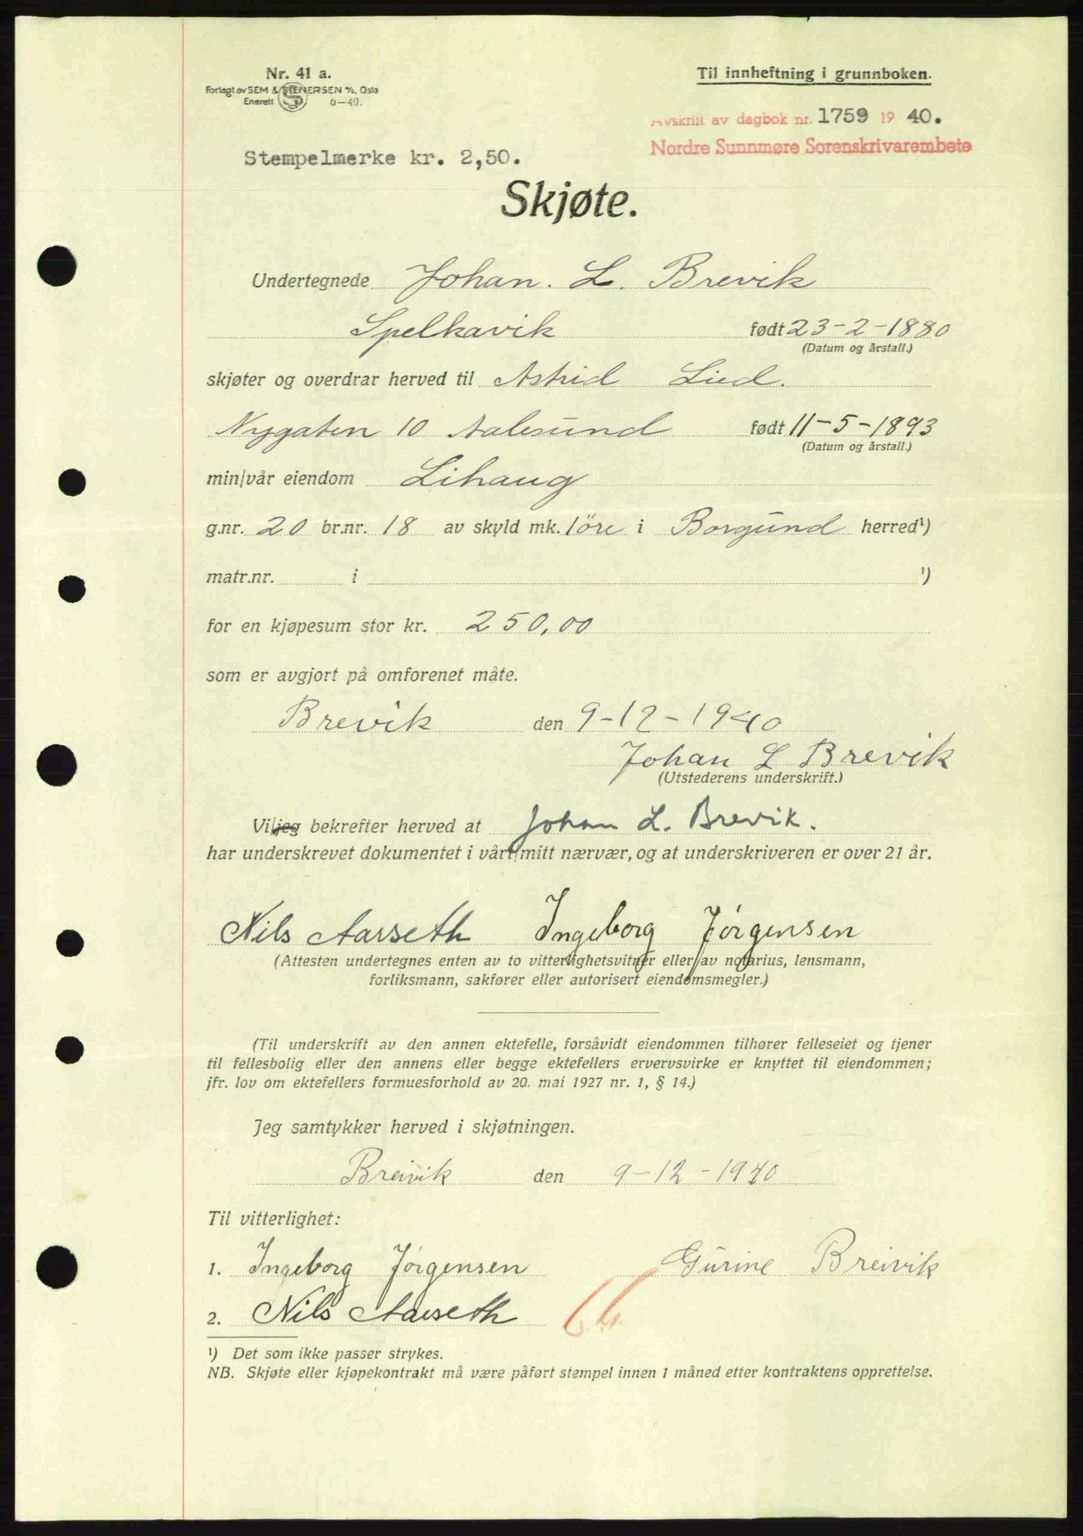 Nr. 41 a.
Forlagt av SEM & STENERSEN A/S, Oslo
Enerett 6—40.
Til innheftning i grunnboken.
Avskrift av dagbok nr. 1759 19 40.
Nordre Sunnmøre Sorenskrivarembete
Stempelmerke kr. 2,50.
Skjøte.
Undertegnede Johan. L. Brevik
Spelkavik født 23-2-1880
(Datum og årstall.)
skjøter og overdrar herved til Astrid Lied.
Nygaten 10 Aalesund født 11-5-1893
(Datum og årstall.)
min/vår eiendom Lihaug
g.nr. 20 br.nr. 18 av skyld mk. 1öre i Borgund herred¹)
matr.nr. i ¹)
for en kjøpesum stor kr. 250,00
som er avgjort på omforenet måte.
Brevik den 9-12-1940
Johan L Brevik
(Utstederens underskrift.)
Vi/jeg bekrefter herved at Johan L. Brevik.
har underskrevet dokumentet i vårt/mitt nærvær, og at underskriveren er over 21 år.
Nils Aarseth Ingeborg Jørgensen
(Attesten undertegnes enten av to vitterlighetsvitner eller av notarius, lensmann,
forliksmann, sakfører eller autorisert eiendomsmegler.)
(Til underskrift av den annen ektefelle, forsåvidt eiendommen tilhører felleseiet og tjener
til fellesbolig eller den annens eller begge ektefellers ervervsvirke er knyttet til eiendommen;
jfr. lov om ektefellers formuesforhold av 20. mai 1927 nr. 1, § 14.)
Jeg samtykker herved i skjøtningen.
Breivik den 9-12-1940
Til vitterlighet:
1. Ingeborg Jørgensen Gurine Breivik
2. Nils Aarseth
¹) Det som ikke passer strykes.
NB. Skjøte eller kjøpekontrakt må være påført stempel innen 1 måned etter kontraktens opprettelse.